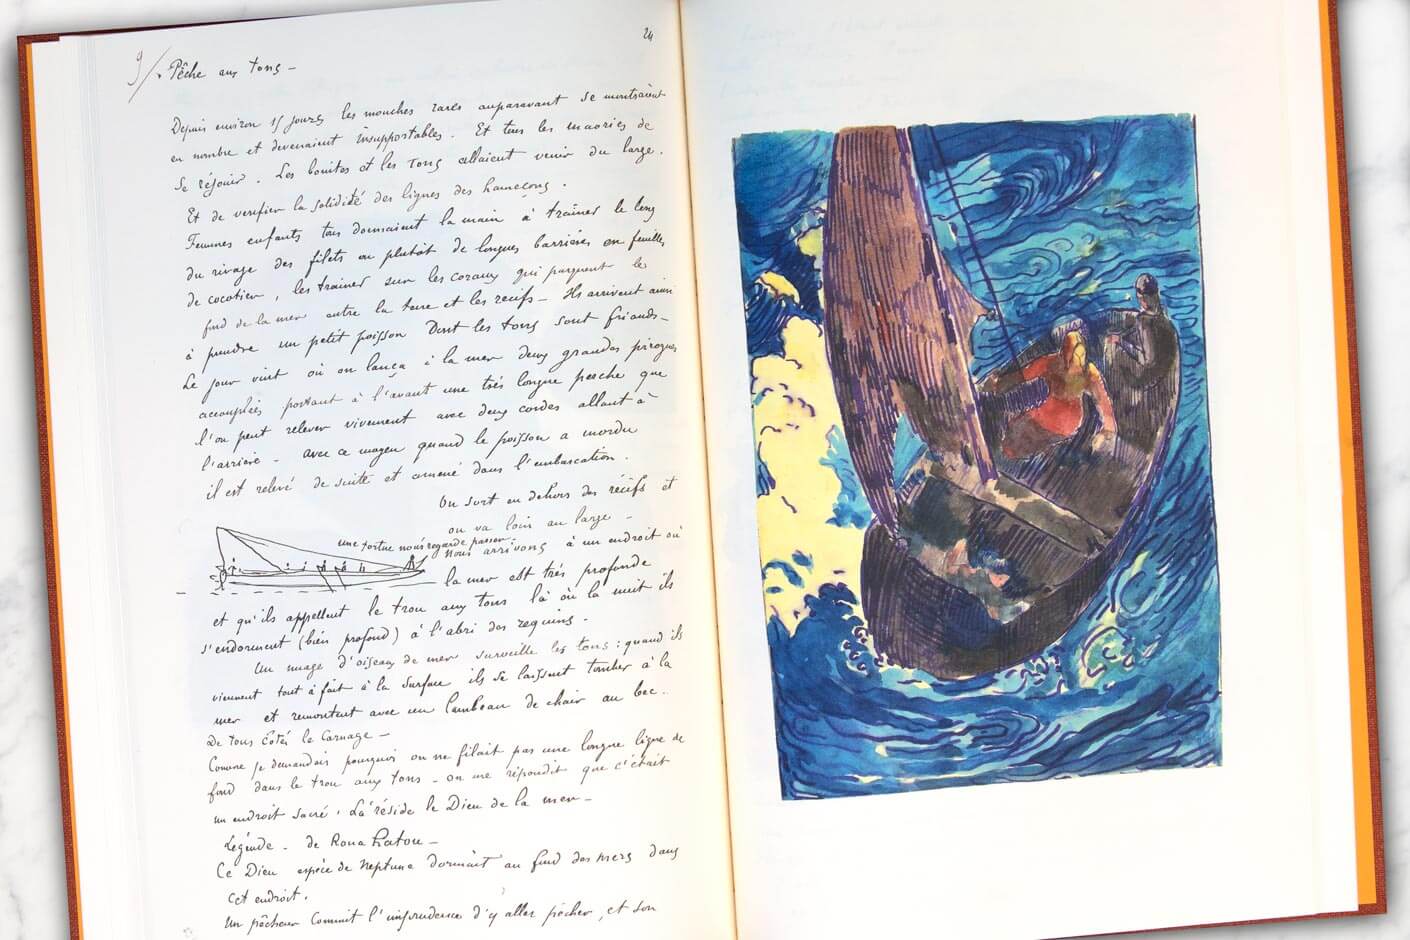 24
9/. Pêche aux tons –
Depuis environ 15 jours les mouches rares auparavant se montraient
en nombre et devenaient insupportables. Et tous les maories de
se réjouir. Les bonites et les tons allaient venir du large.
Et de verifier la solidité des lignes des hameçons.
Femmes enfants tous donnaient la main à traîner le long
du rivage des filets ou plutôt de longues barrières en feuilles
de cocotier, les trainer sur les coraux qui parquent le
fond de la mer entre la terre et les récifs – Ils arrivent ainsi
à prendre un petit poisson dont les tons sont friands –
Le jour vint où on lança à la mer deux grandes pirogues
accouplées portant à l'avant une très longue perche que
l'on peut relever vivement avec deux cordes allant à
l'arrière – avec ce moyen quand le poisson a mordu
il est relevé de suite et amené dans l'embarcation.
On sort en dehors des récifs et
on va loin au large –
une tortue nous regarde passer.
Nous arrivons à un endroit où
la mer est très profonde
et qu'ils appellent le trou aux tons là où la nuit ils
s'endorment (bien profond) à l'abri des requins.
Un nuage d'oiseaux de mer surveille les tons : quand ils
viennent tout à fait à la surface ils se laissent tomber à la
mer et remontent avec un lambeau de chair au bec.
De tous côtés le Carnage –
Comme je demandais pourquoi on ne filait pas une longue ligne de
fond dans le trou aux tons – on me répondit que c'était
un endroit sacré. Là réside le Dieu de la mer –
Légende – de Roua hatou –
Ce Dieu espèce de Neptune dormait au fond des mers dans
cet endroit.
Un pêcheur commit l'imprudence d'y aller pêcher, et son